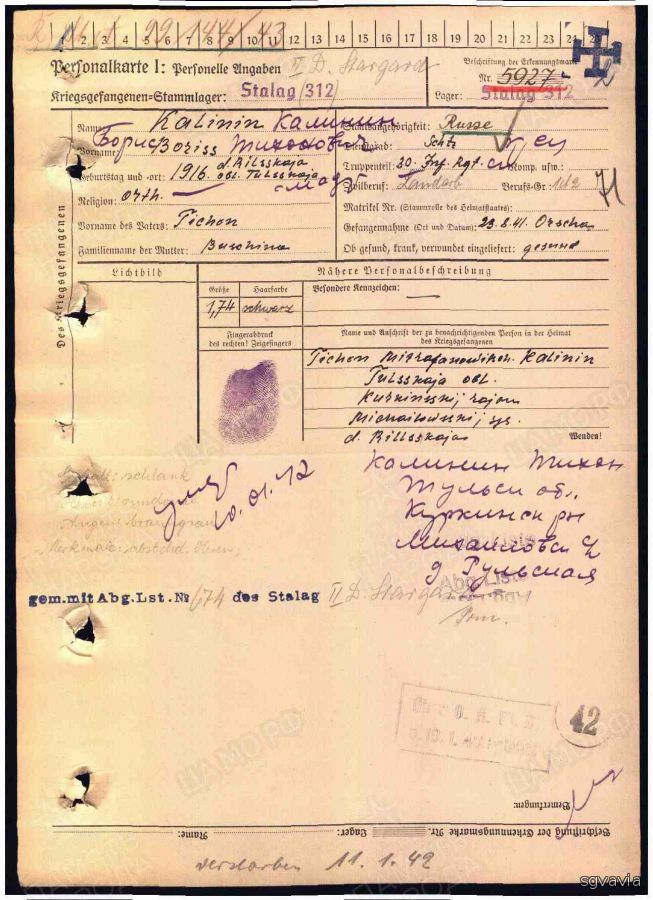 1 2 3 4 5 6 7 8 9 10 11 12 13 14 15 16 17 18 19 20 21 22 23 24 25
Personalkarte I: Personelle Angaben
II D. Stargard
Beschriftung der Erkennungsmarke
Nr. 5927
Kriegsgefangenen=Stammlager: Stalag (312)
Lager: Stalag 312
Des Kriegsgefangenen
Name: Kalinin Калинин
Staatsangehörigkeit: Russe
Борис Boriss Тихонович
Vorname:
Dienstgrad: Schtz
Geburtstag und -ort: 1916 d. Rilsskaja obl. Tulsskaja
Truppenteil: 30. Inf. Rgt. Komp. usw.:
Religion: orth.
Zivilberuf: Landarb Berufs-Gr.: 1112
71
Matrikel Nr. (Stammrolle des Heimatstaates):
Vorname des Vaters: Tichon
Gefangennahme (Ort und Datum): 23.8.41. Orscha
Familienname der Mutter:
Ob gesund, krank, verwundet eingeliefert: gesund
Lichtbild
Nähere Personalbeschreibung
Größe Haarfarbe
Besondere Kennzeichen: —
1,74 schwarz
Fingerabdruck
des rechten! Zeigefingers
Name und Anschrift der zu benachrichtigenden Person in der Heimat
des Kriegsgefangenen
Tichon Mitrofanowitsch Kalinin
Tulsskaja obl.
Kurkinsskij rajon
Michailowsskij
d. Rillsskaja
Wenden!
schlank
Калинин Тихон
Тульск обл.
умер
10.01.42
Куркинск рн
Augen: braungrau
Михайловск
Merkmale:
д Рульская
Abg. Liste
gem.mit Abg.Lst.№ 174 des Stalag II D. Stargard
Pom.
42
Bemerkungen:
Beschriftung der Erkennungsmarke Nr. Lager: Name:
verstorben 11.1.42
ЦАМО РФ
sgvavia